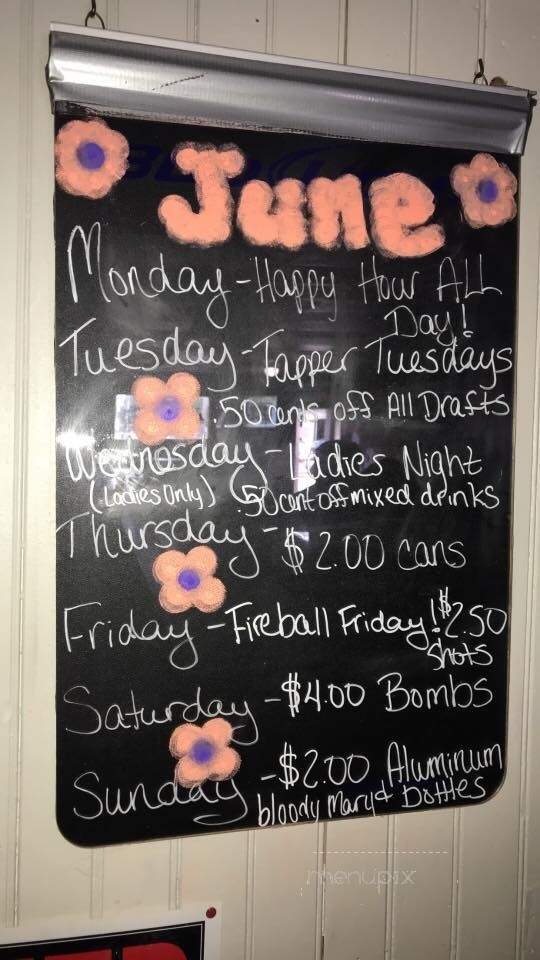 June
Monday - Happy Hour ALL
Day!
Tuesday - Tapper Tuesdays
.50 cents off All Drafts
Wednesday - Ladies Night
(Ladies Only) .50 cent off mixed drinks
Thursday - $2.00 cans
Friday - Fireball Friday! $2.50
shots
Saturday - $4.00 Bombs
Sunday - $2.00 Aluminum
bloody mary & bottles
menupix